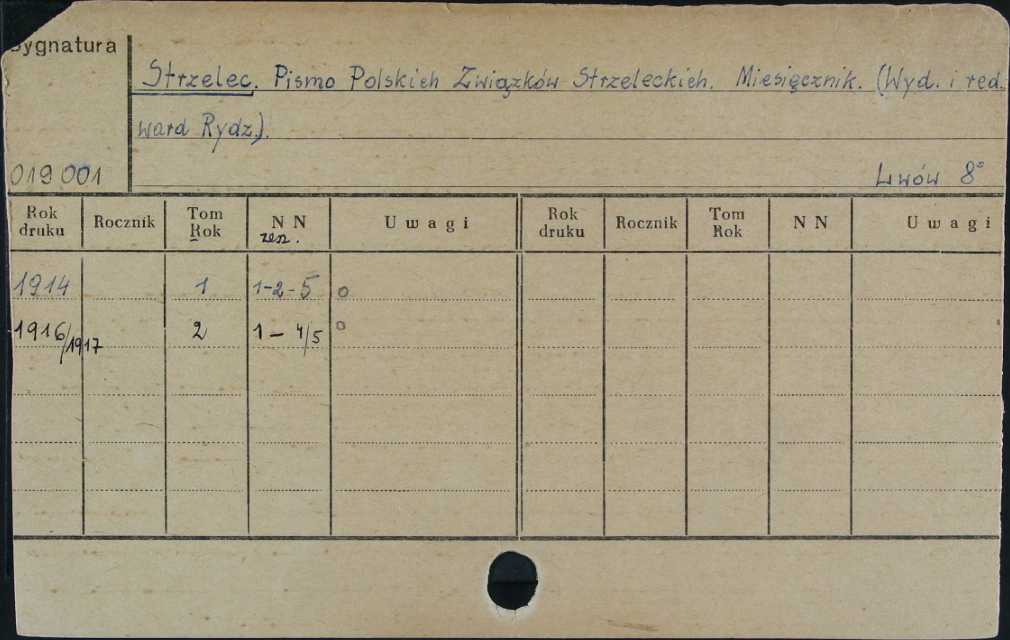 Sygnatura
Strzelec. Pismo Polskich Związków Strzeleckich. Miesięcznik. (Wyd. i red.
ward Rydz.).
019001
Lwów 8°
Rok druku Rocznik Tom Rok N N zesz. Uwagi Rok druku Rocznik Tom Rok N N Uwagi
1914 1 1-2-5 o
1916/1917 2 1 - 4/5 o